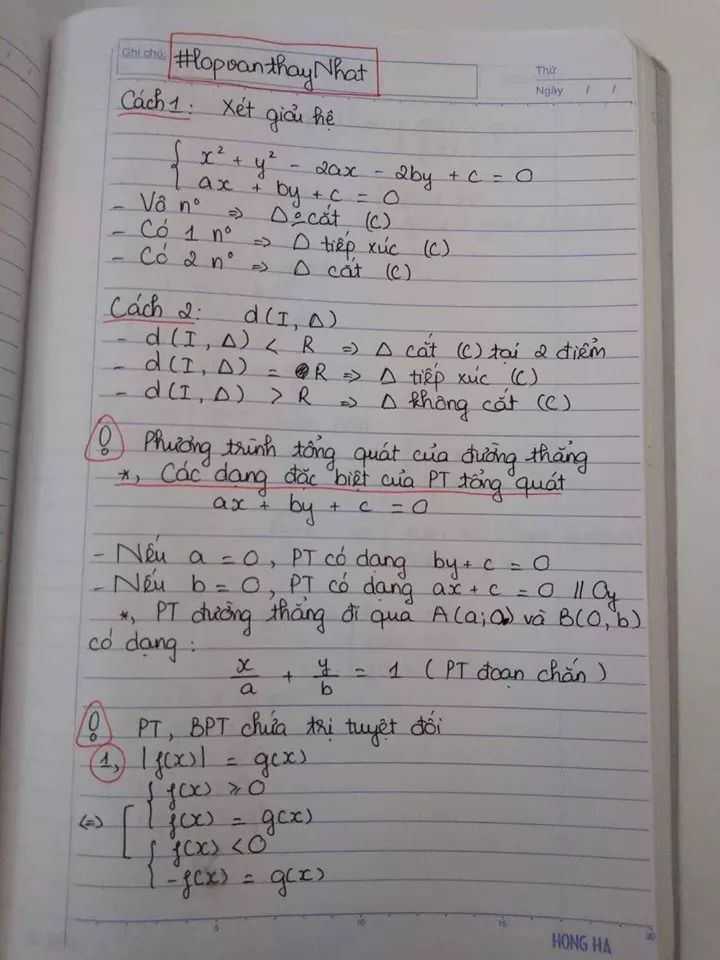 Ghi chú:
#lopoanthayNhat
Thứ
Ngày / /
Cách 1: Xét giải hệ
{ x² + y² - 2ax - 2by + c = 0
ax + by + c = 0
- Vô n° => Δ cắt (C)
- Có 1 n° => Δ tiếp xúc (C)
- Có 2 n° => Δ cắt (C)
Cách 2: d(I, Δ)
- d(I, Δ) < R => Δ cắt (C) tại 2 điểm
- d(I, Δ) = R => Δ tiếp xúc (C)
- d(I, Δ) > R => Δ không cắt (C)
Phương trình tổng quát của đường thẳng
*, Các dạng đặc biệt của PT tổng quát
ax + by + c = 0
- Nếu a = 0, PT có dạng by + c = 0
- Nếu b = 0, PT có dạng ax + c = 0 // Oy
*, PT đường thẳng đi qua A(a;0) và B(0,b)
có dạng:
x/a + y/b = 1 (PT đoạn chắn)
PT, BPT chứa trị tuyệt đối
1, |f(x)| = g(x)
{ f(x) ≥ 0
<=> [ f(x) = g(x)
{ f(x) < 0
-f(x) = g(x)
5 10 15 20
HONG HA